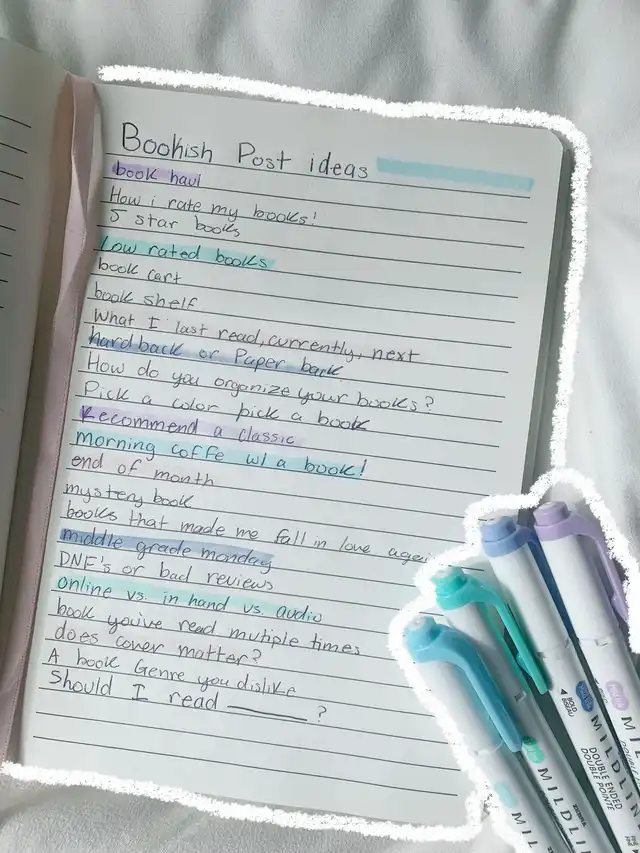 Bookish Post ideas
book haul
How i rate my books!
5 star books
Low rated books
book cart
book shelf
What I last read, currently, next
hardback or Paper back
How do you organize your books?
Pick a color pick a book
Recommend a classic
morning coffe w/ a book!
end of month
mystery book
books that made me fall in love agai
middle grade monday
DNF's or bad reviews
online vs. in hand vs. audio
book you've read mutiple times
does cover matter?
A book Genre you dislike
Should I read ______ ?
BOLD
MILDLIN
DOUBLE ENDED
DOUBLE POINTE
MILDLIN
ZEBRA
MILDLIN
MIL